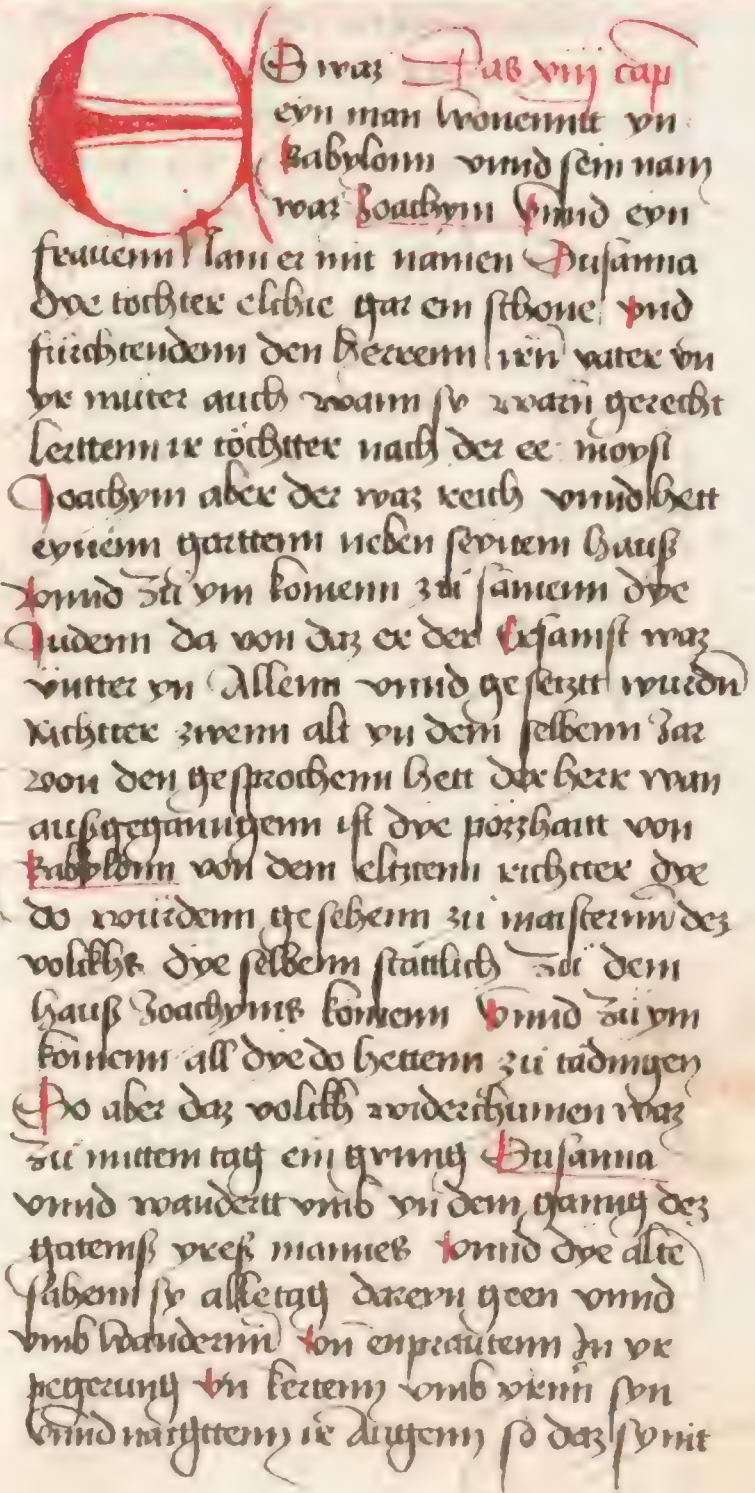 ES waz Das viij cap
eyn man wonennt yn
Babylonn vnnd sein nam
waz Joachym Vnnd eyn
frauenn Nam er mit namen Susanna
dye tochter elchie gar ein schone vnd
fürchtendenn den herrenn irn vater vn
yr muter auch wann sy warn gerecht
lerttenn ir töchtter nach der ee moysi
Joachym aber der waz reich vnnd hett
eynenn garttenn neben seynem hauß
Vnnd zu ym komenn zu samenn dye
Judenn da von daz er der Ersamist waz
vntter yn Allenn vnnd gesetztt wurdn
richtter zwenn alt yn dem selbenn Jar
von den gesprochenn hett der herr wan
außgeganngenn ist dye pözzhaitt von
Babylonn von dem elltztenn richtter dye
do wurdenn gesehenn zu maisternn dez
volckhs dye selbenn stättlich zu dem
hauß Joachyms komenn Vnnd zu ym
komenn all dye do hettenn zu tädingen
So aber daz volckh widerchumen waz
zu mittem tag ein gyung Susanna
vnnd wandertt vmb yn dem ganng dez
gatenß yreß mannes Vnnd dye alte
sahenn sy alletag dareyn geen vnnd
vmb wandernn Vn enprantenn Jn yr
pegerung Vn kertenn vmb yrnn syn
Vnnd naygttenn ir Augenn so daz sy nit